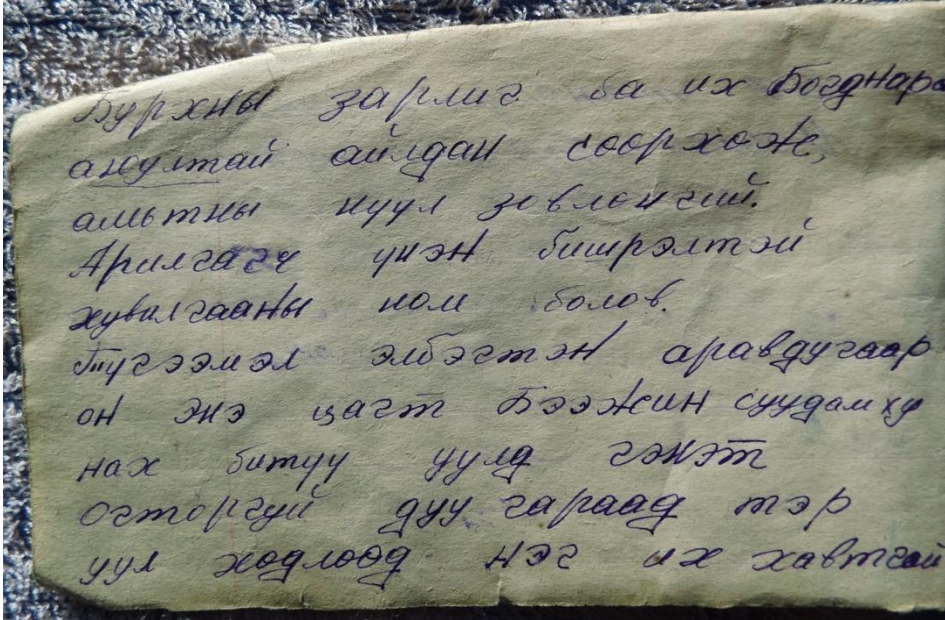 Бурхны зарлиг ба их Богднар
аюултай айлдан соорхоже,
амьтны нүүл зовлонгий.
Арилгагч үнэн бишрэлтэй
хувилгааны ном болов.
Түгээмэл элбэгтэн аравдугаар
он энэ цагт Бээжин суудам ху
нах битүү уулд гэнэт
огторгуй дуу гараад тэр
уул ходлоод нэг их хавтгай